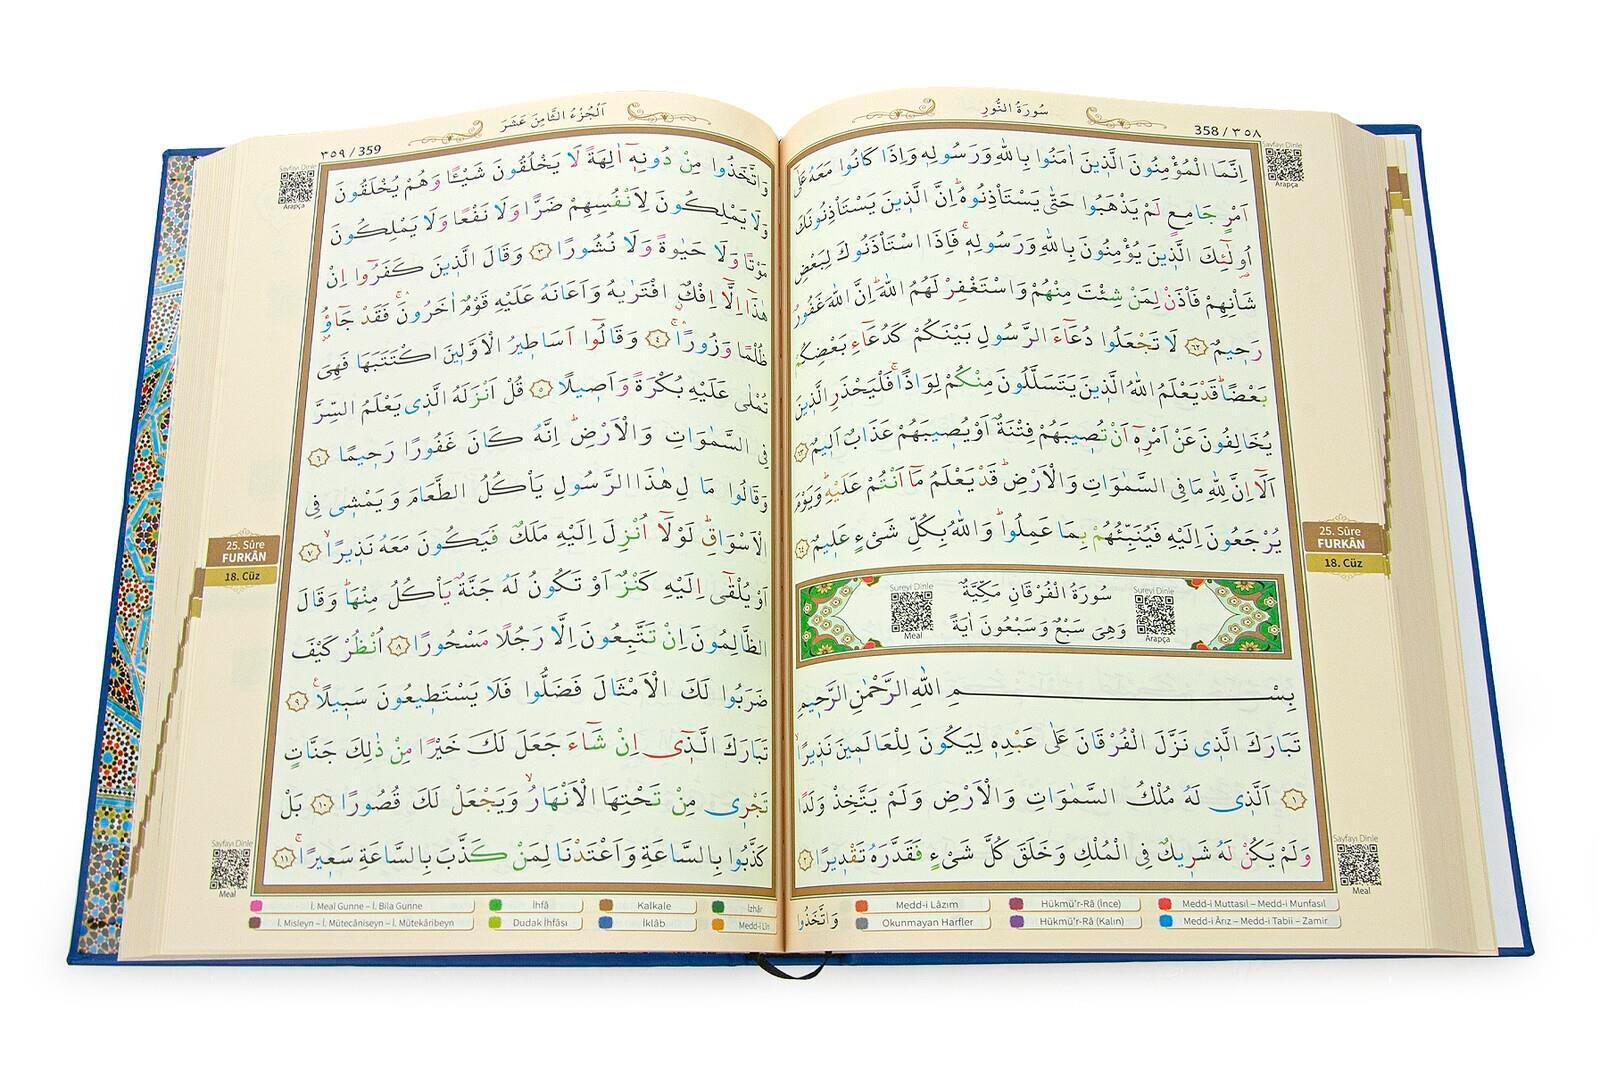 358 / ٣٥٨
سُورَةُ النُّورِ
Sayfayı Dinle
Arapça
اِنَّمَا الْمُؤْمِنُونَ الَّذٖينَ اٰمَنُوا بِاللّٰهِ وَرَسُولِهٖ وَاِذَا كَانُوا مَعَهُ عَلٰٓى
اَمْرٍ جَامِعٍ لَمْ يَذْهَبُوا حَتّٰى يَسْتَأْذِنُوهُۜ اِنَّ الَّذٖينَ يَسْتَأْذِنُونَكَ
اُولٰٓئِكَ الَّذٖينَ يُؤْمِنُونَ بِاللّٰهِ وَرَسُولِهٖۚ فَاِذَا اسْتَأْذَنُوكَ لِبَعْضِ
شَأْنِهِمْ فَأْذَنْ لِمَنْ شِئْتَ مِنْهُمْ وَاسْتَغْفِرْ لَهُمُ اللّٰهَۜ اِنَّ اللّٰهَ غَفُورٌ
رَحٖيمٌ ﴿٦٢﴾ لَا تَجْعَلُوا دُعَٓاءَ الرَّسُولِ بَيْنَكُمْ كَدُعَٓاءِ بَعْضِكُمْ
بَعْضًاۜ قَدْ يَعْلَمُ اللّٰهُ الَّذٖينَ يَتَسَلَّلُونَ مِنْكُمْ لِوَاذًاۚ فَلْيَحْذَرِ الَّذٖينَ
يُخَالِفُونَ عَنْ اَمْرِهٖٓ اَنْ تُصٖيبَهُمْ فِتْنَةٌ اَوْ يُصٖيبَهُمْ عَذَابٌ اَلٖيمٌ ﴿٦٣﴾
اَلَٓا اِنَّ لِلّٰهِ مَا فِى السَّمٰوَاتِ وَالْاَرْضِۜ قَدْ يَعْلَمُ مَٓا اَنْتُمْ عَلَيْهِۜ وَيَوْمَ
يُرْجَعُونَ اِلَيْهِ فَيُنَبِّئُهُمْ بِمَا عَمِلُواۜ وَاللّٰهُ بِكُلِّ شَىْءٍ عَلٖيمٌ ﴿٦٤﴾
25. Sûre
FURKÂN
18. Cüz
Sureyi Dinle
Arapça
سُورَةُ الْفُرْقَانِ مَكِّيَّةٌ
وَهِىَ سَبْعٌ وَسَبْعُونَ اٰيَةً
Sureyi Dinle
Meal
بِسْمِ اللّٰهِ الرَّحْمٰنِ الرَّحٖيمِ
تَبَارَكَ الَّذٖى نَزَّلَ الْفُرْقَانَ عَلٰى عَبْدِهٖ لِيَكُونَ لِلْعَالَمٖينَ نَذٖيرًاۙ
﴿١﴾ اَلَّذٖى لَهُ مُلْكُ السَّمٰوَاتِ وَالْاَرْضِ وَلَمْ يَتَّخِذْ وَلَدًا
وَلَمْ يَكُنْ لَهُ شَرٖيكٌ فِى الْمُلْكِ وَخَلَقَ كُلَّ شَىْءٍ فَقَدَّرَهُ تَقْدٖيرًا ﴿٢﴾
Sayfayı Dinle
Meal
وَاتَّخَذُوا
Medd-i Lâzım
Hükmü'r-Râ (İnce)
Medd-i Muttasıl – Medd-i Munfasıl
Okunmayan Harfler
Hükmü'r-Râ (Kalın)
Medd-i Ârız – Medd-i Tabii – Zamir
اَلْجُزْءُ الثَّامِنَ عَشَرَ
٣٥٩ / 359
Sayfayı Dinle
Arapça
وَاتَّخَذُوا مِنْ دُونِهٖٓ اٰلِهَةً لَا يَخْلُقُونَ شَيْـًٔا وَهُمْ يُخْلَقُونَ
وَلَا يَمْلِكُونَ لِاَنْفُسِهِمْ ضَرًّا وَلَا نَفْعًا وَلَا يَمْلِكُونَ
مَوْتًا وَلَا حَيٰوةً وَلَا نُشُورًا ﴿٣﴾ وَقَالَ الَّذٖينَ كَفَرُٓوا اِنْ
هٰذَٓا اِلَّٓا اِفْكٌۨ افْتَرٰيهُ وَاَعَانَهُ عَلَيْهِ قَوْمٌ اٰخَرُونَۚ فَقَدْ جَٓاؤُ۫
ظُلْمًا وَزُورًاۚ ﴿٤﴾ وَقَالُٓوا اَسَاطٖيرُ الْاَوَّلٖينَ اكْتَتَبَهَا فَهِىَ
تُمْلٰى عَلَيْهِ بُكْرَةً وَاَصٖيلًا ﴿٥﴾ قُلْ اَنْزَلَهُ الَّذٖى يَعْلَمُ السِّرَّ
فِى السَّمٰوَاتِ وَالْاَرْضِۜ اِنَّهُ كَانَ غَفُورًا رَحٖيمًا ﴿٦﴾
وَقَالُوا مَا لِ هٰذَا الرَّسُولِ يَأْكُلُ الطَّعَامَ وَيَمْشٖى فِى
الْاَسْوَاقِۜ لَوْلَٓا اُنْزِلَ اِلَيْهِ مَلَكٌ فَيَكُونَ مَعَهُ نَذٖيرًاۙ ﴿٧﴾
اَوْ يُلْقٰٓى اِلَيْهِ كَنْزٌ اَوْ تَكُونُ لَهُ جَنَّةٌ يَأْكُلُ مِنْهَاۜ وَقَالَ
الظَّالِمُونَ اِنْ تَتَّبِعُونَ اِلَّا رَجُلًا مَسْحُورًا ﴿٨﴾ اُنْظُرْ كَيْفَ
ضَرَبُوا لَكَ الْاَمْثَالَ فَضَلُّوا فَلَا يَسْتَطٖيعُونَ سَبٖيلًاࣖ ﴿٩﴾
تَبَارَكَ الَّذٖٓى اِنْ شَٓاءَ جَعَلَ لَكَ خَيْرًا مِنْ ذٰلِكَ جَنَّاتٍ
تَجْرٖى مِنْ تَحْتِهَا الْاَنْهَارُۙ وَيَجْعَلْ لَكَ قُصُورًا ﴿١٠﴾ بَلْ
كَذَّبُوا بِالسَّاعَةِ وَاَعْتَدْنَا لِمَنْ كَذَّبَ بِالسَّاعَةِ سَعٖيرًاۚ ﴿١١﴾
25. Sûre
FURKÂN
18. Cüz
Sayfayı Dinle
Meal
İ. Meal Gunne – İ. Bila Gunne
İhfâ
Kalkale
İzhâr
İ. Misleyn – İ. Mütecâniseyn – İ. Mütekâribeyn
Dudak İhfâsı
İklâb
Medd-i Lîn